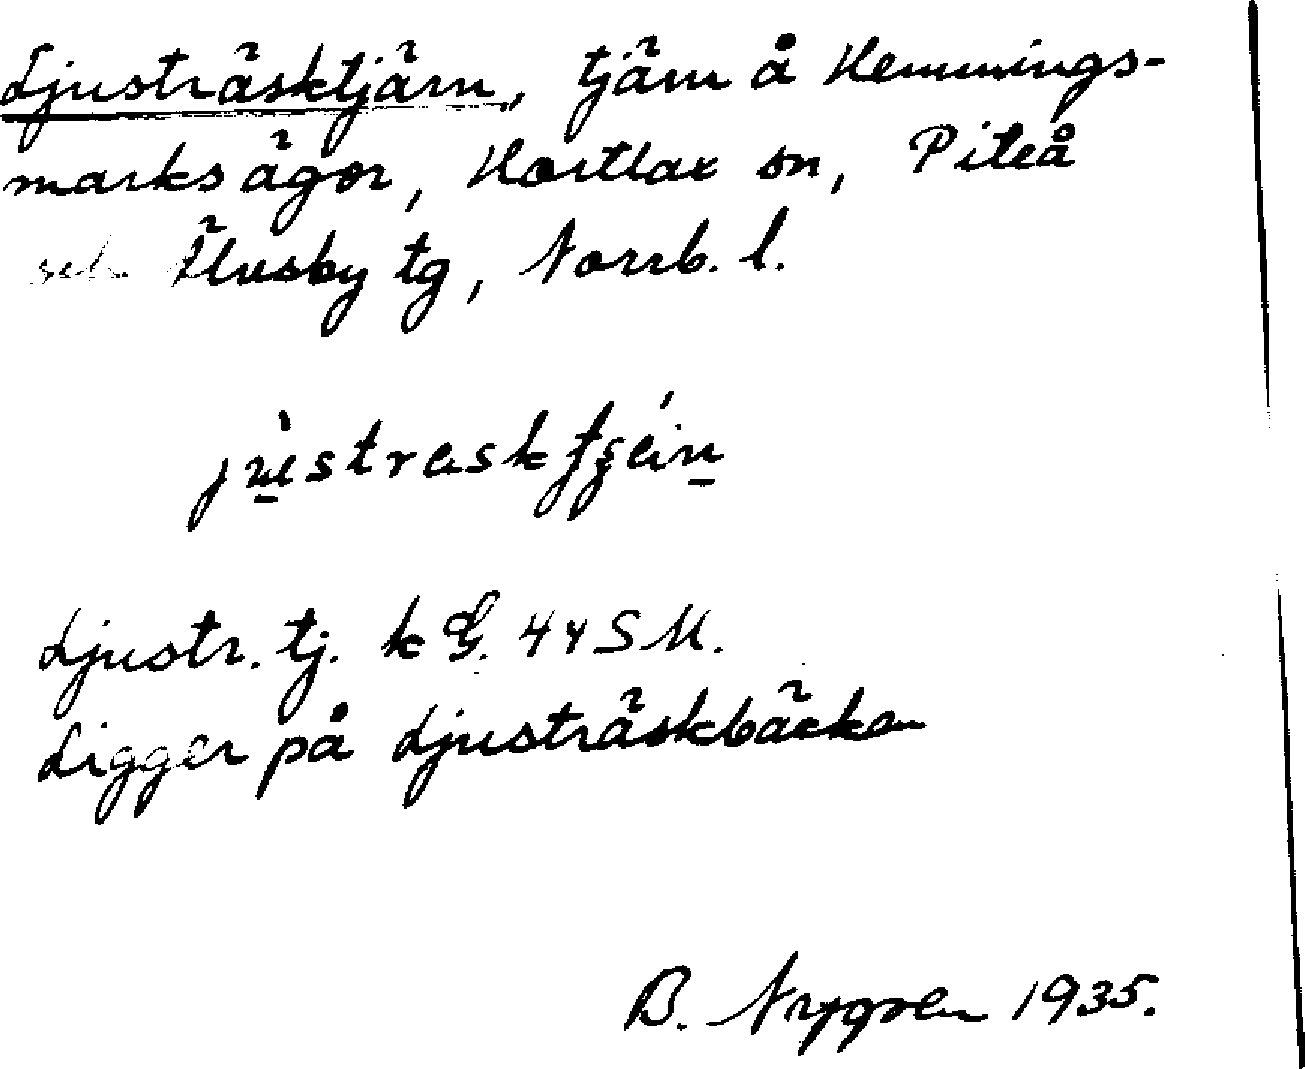 Ljusträsktjärn, tjärn å Hemmings-
marksägor, Hortlax sn, Piteå
och Älvsby tg, Norrb. l.
Ljustr. tj. k G. 44 S M.
Ligger på Ljusträskbäcken
B. Nygren 1935.